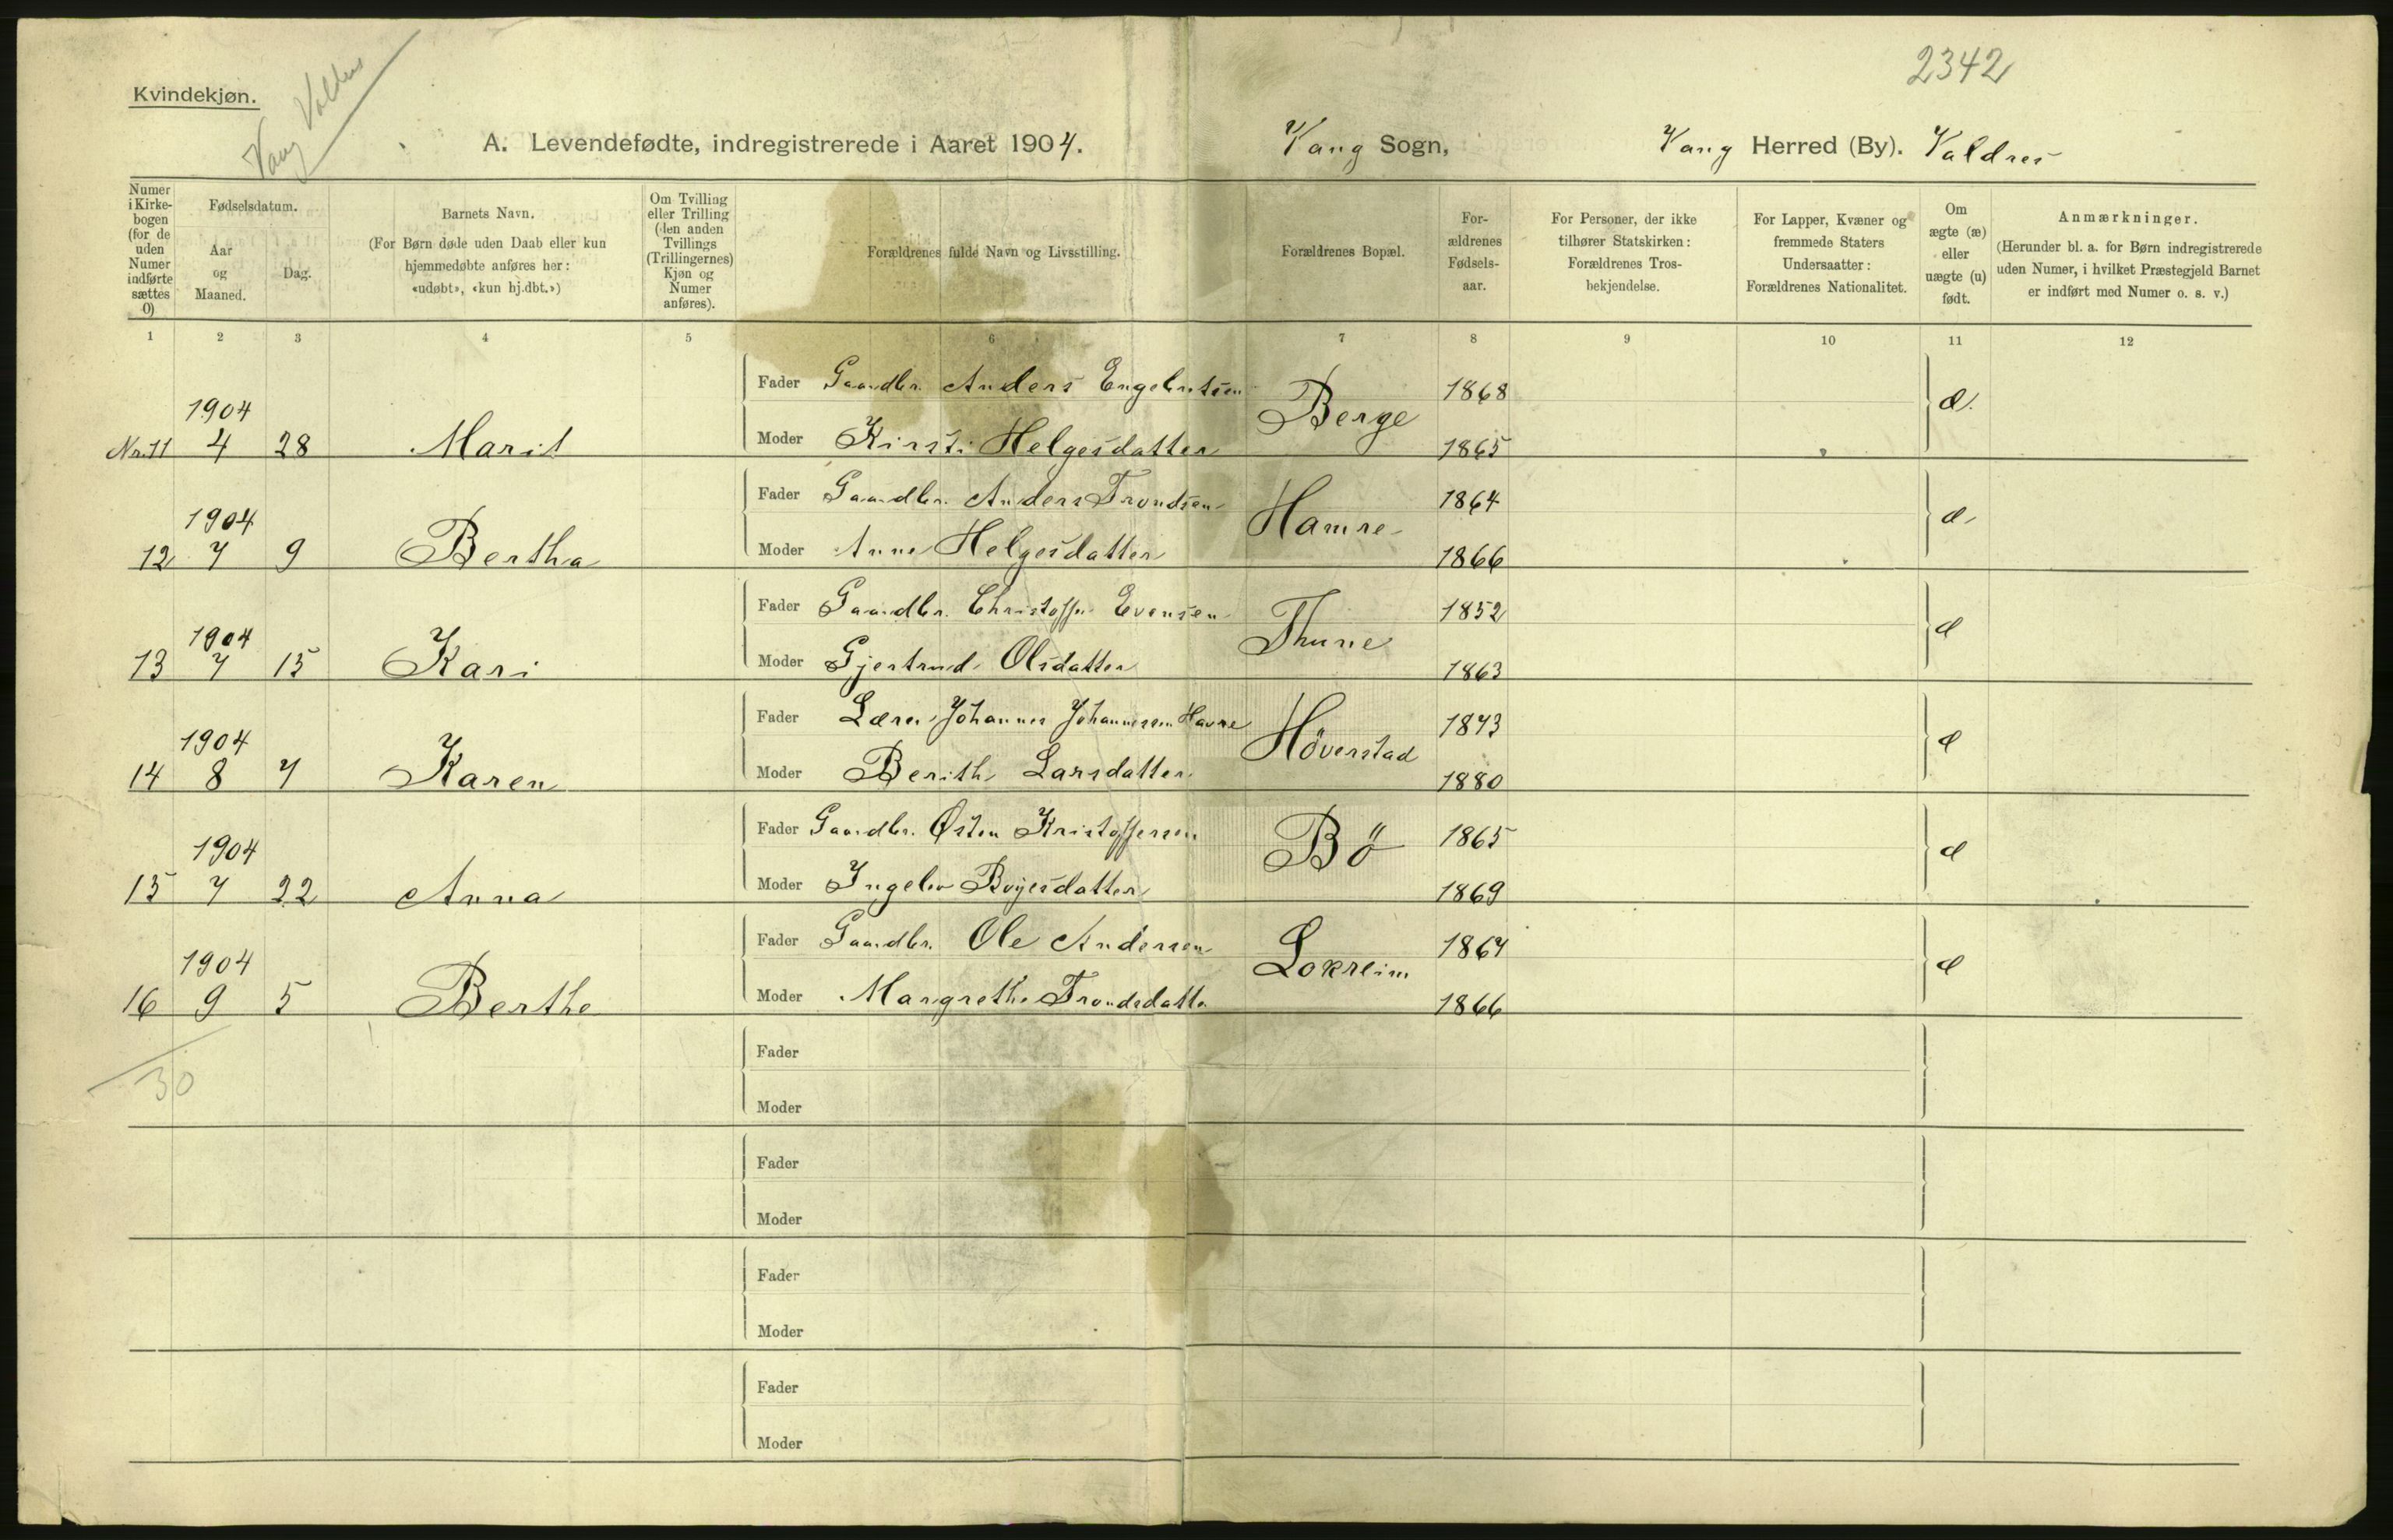 2342
Vang Valdres
Kvindekjøn.
A. Levendefødte, indregistrerede i Aaret 1904. Vang Sogn, Vang Herred (By). Valdres
Numer i Kirke-bogen (for de uden Numer indførte sættes 0)
Fødselsdatum.
Aar og Maaned.
Dag.
Barnets Navn.
(For Børn døde uden Daab eller kun
hjemmedøbte anføres her:
«udøbt», «kun hj.dbt.»)
Om Tvilling
eller Trilling
(den anden
Tvillings
(Trillingernes)
Kjøn og
Numer
anføres).
Forældrenes fulde Navn og Livsstilling.
Forældrenes Bopæl.
For-
ældrenes
Fødsels-
aar.
For Personer, der ikke
tilhører Statskirken:
Forældrenes Tros-
bekjendelse.
For Lapper, Kvæner og
fremmede Staters
Undersaatter:
Forældrenes Nationalitet.
Om
ægte (æ)
eller
uægte (u)
født.
Anmærkninger.
(Herunder bl. a. for Børn indregistrerede
uden Numer, i hvilket Præstegjeld Barnet
er indført med Numer o. s. v.)
1 2 3 4 5 6 7 8 9 10 11 12
Fader Gaardbr. Anders Engebretsen Berge 1868 æ.
Nr. 11 1904 4 28 Marit Moder Kirsti Helgesdatter 1865
Fader Gaardbr. Anders Trondsen Hamre 1864 æ
12 1904 7 9 Bertha Moder Anne Helgesdatter 1866
Fader Gaardbr. Christoffer Evensen Thune 1852 æ
13 1904 7 15 Kari Moder Gjertrud Olsdatter 1863
Fader Lærer Johannes Johannessen Havre Höverstad 1873 æ
14 1904 8 7 Karen Moder Berith Larsdatter 1880
Fader Gaardbr. Østen Kristoffersen Bö 1865 æ
15 1904 7 22 Anna Moder Ingebor Boyesdatter 1869
Fader Gaardbr. Ole Andersen Lokreim 1867 æ
16 1904 9 5 Berthe Moder Margrethe Trondsdatter 1866
30
Fader
Moder
Fader
Moder
Fader
Moder
Fader
Moder